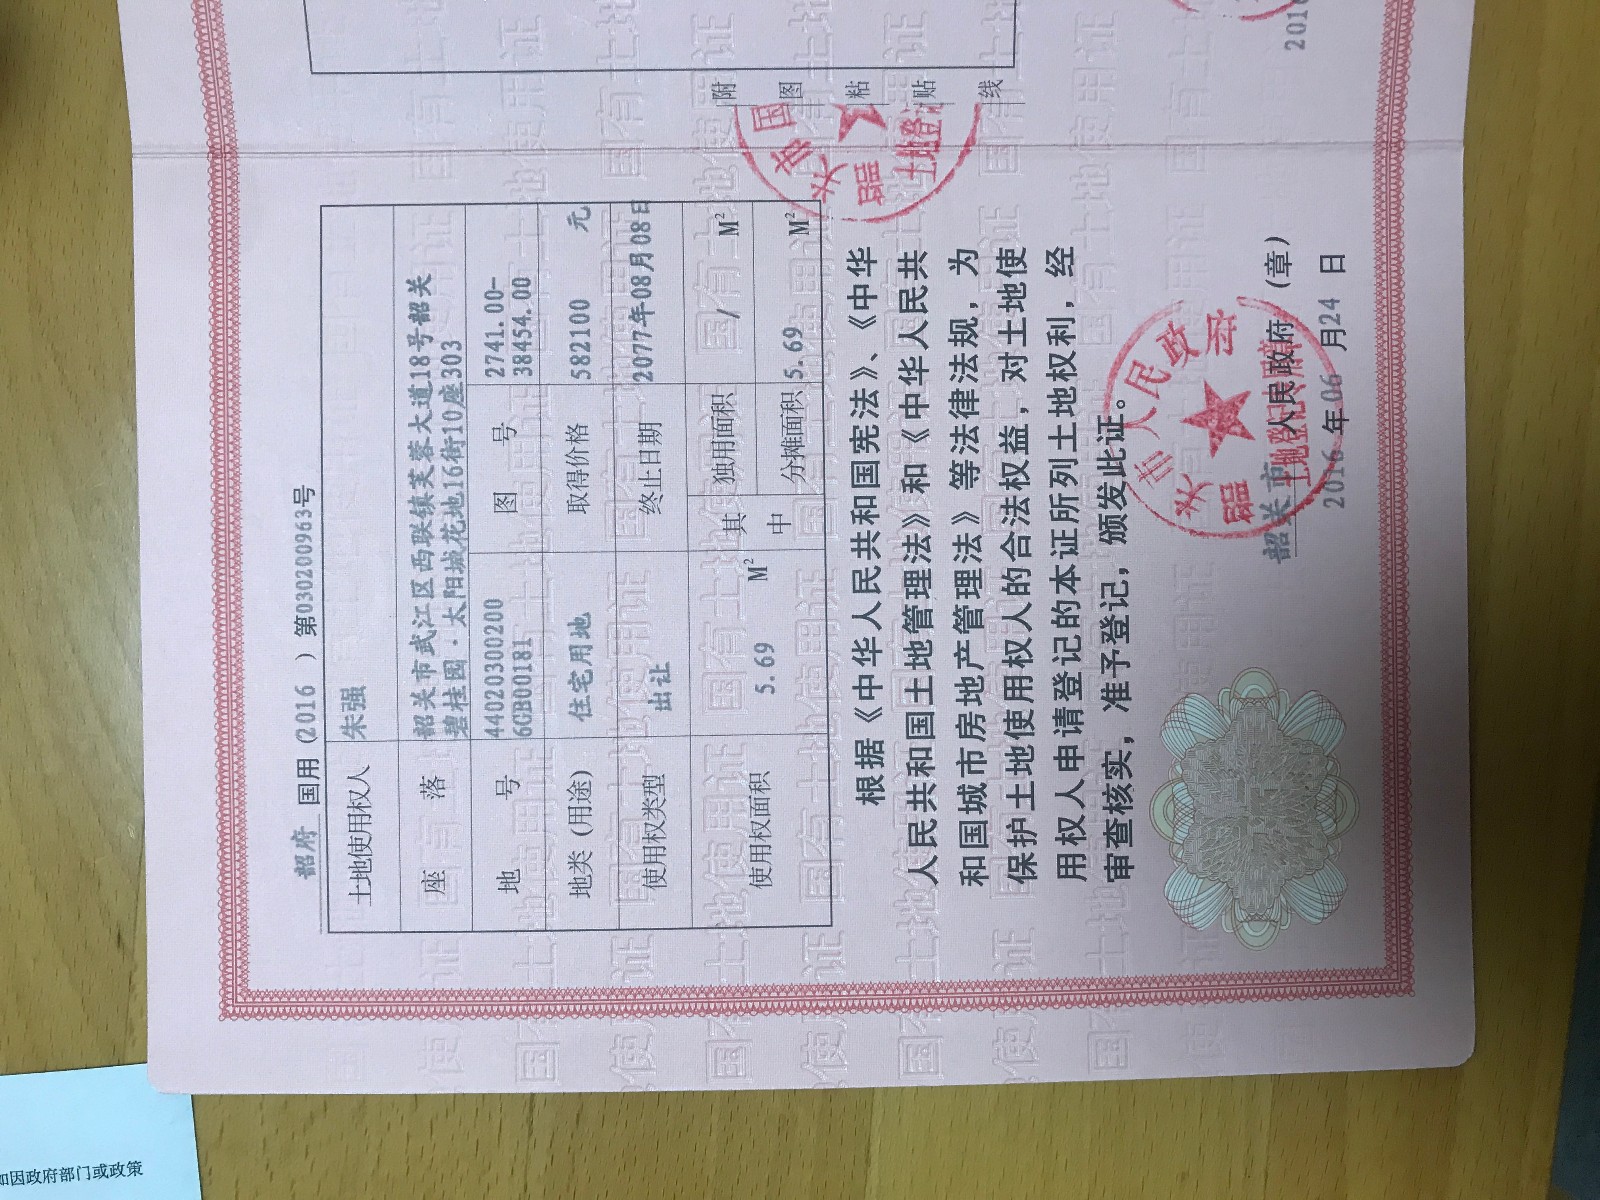 韶府 国用(2016 ) 第030200963号
土地使用权人 朱强
座 落 韶关市武江区西联镇芙蓉大道18号韶关
碧桂园·太阳城花地16街10座303
地 号 440203002006GB00181 图 号 2741.00-38454.00
地类(用途) 住宅用地 取得价格 582100 元
使用权类型 出让 终止日期 2077年08月08日
使用权面积 5.69 M² 其中 独用面积 / M²
分摊面积 5.69 M²
根据《中华人民共和国宪法》、《中华
人民共和国土地管理法》和《中华人民共
和国城市房地产管理法》等法律法规，为
保护土地使用权人的合法权益，对土地使
用权人申请登记的本证所列土地权利，经
审查核实，准予登记，颁发此证。
韶关市 人民政府 (章)
2016 年 06 月 24 日
韶关市人民政府
土地登记专用章
附图粘贴线
韶关市国
土地登
2016
如因政府部门或政策